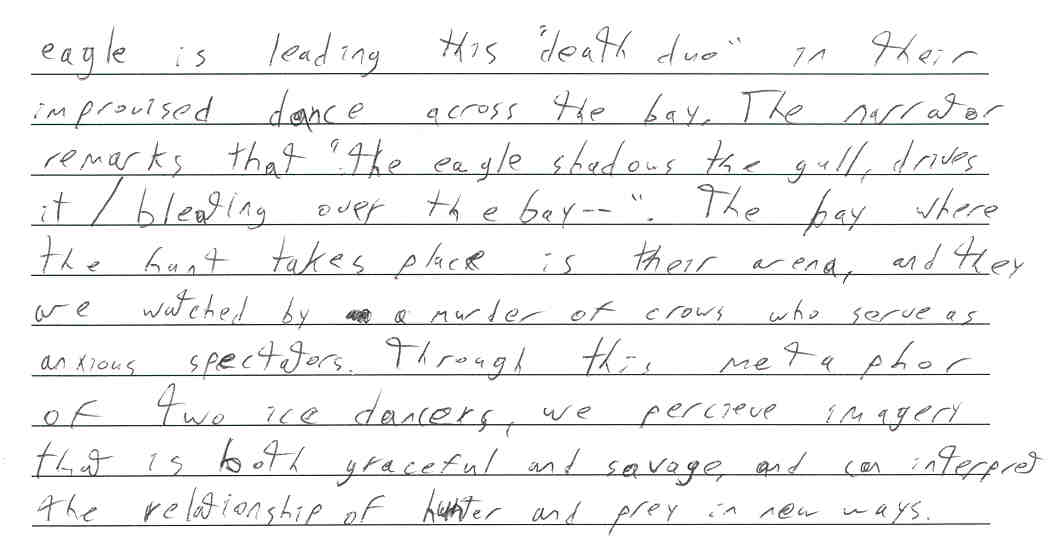 eagle is leading this "death duo" in their
improvised dance across the bay. The narrator
remarks that "the eagle shadows the gull, drives
it / bleating over the bay--". The bay where
the hunt takes place is their arena, and they
are watched by a murder of crows who serve as
anxious spectators. Through this metaphor
of two ice dancers, we percieve imagery
that is both graceful and savage, and can interpret
the relationship of hunter and prey in new ways.